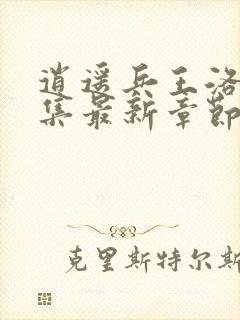 逍遥兵王洛
集最新章节
克里斯特尔斯